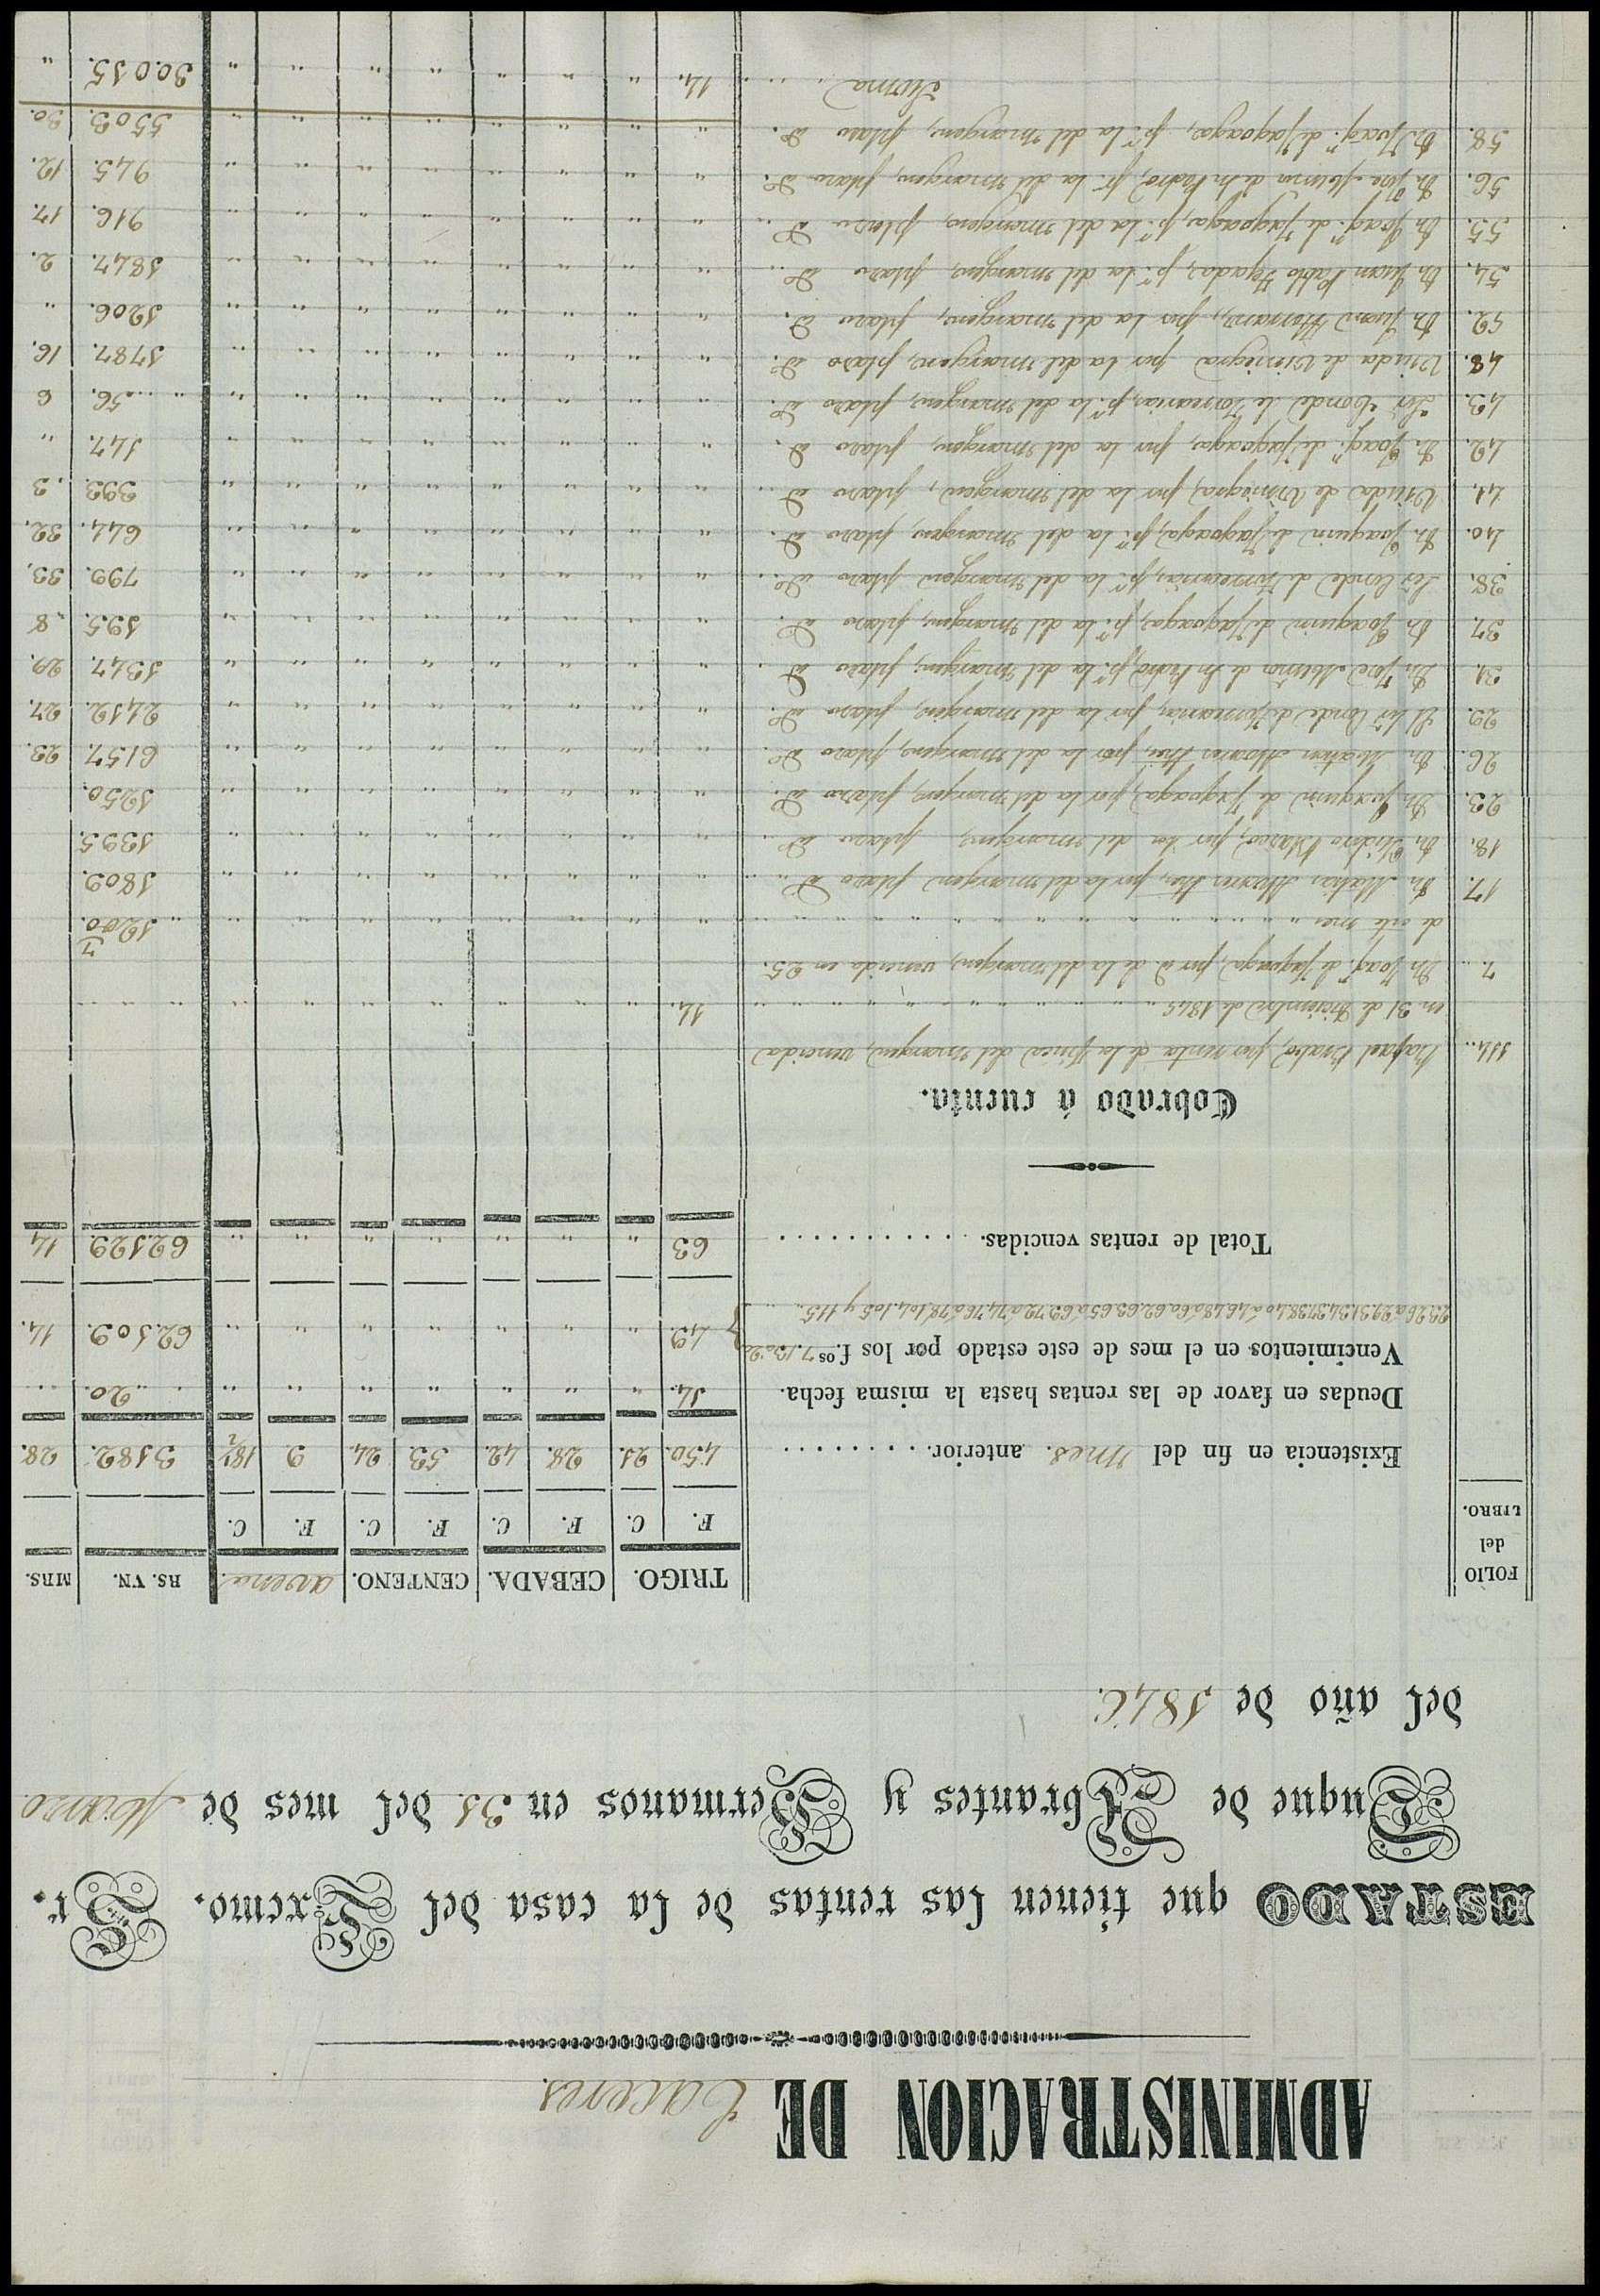 ADMINISTRACION DE Caceres.
ESTADO que tienen las rentas de la casa del Exemo. Sr.
Duque de Abrantes y Hermanos en 31 del mes de Marzo
del año de 1846.
FOLIO del LIBRO. TRIGO. CEBADA. CENTENO. avena. RS. VN. MRS.
F. C. F. C. F. C. F. C.
Existencia en fin del mes. anterior. 450. 21. 28. 42. 53. 24. 9 18 1/2 3182. 28.
Deudas en favor de las rentas hasta la misma fecha. 14. " " " " " " " 20.
Vencimientos en el mes de este estado por los f.os 49. " " " " " " " 62.109. 14.
Total de rentas vencidas. 63 " " " " " " " 62.129. 14
Cobrado á cuenta.
114. Rafael Bravo, por renta de la finca del margen, vencida
en 31 de Diciembre de 1845 14. " " " " " " "
7. Dn Joaqn. de Jagoaga, por d. de la del margen, vencida en 25.
de este mes " " " " " " " " 1200.
17. Dn Matias por la del margen plazo Do " " " " " " " " 1809.
18. Dn Isidoro Blasco, por la del margen, plazo Do " " " " " " " " 1395.
23. Dn Joaquin de Jagoaga, por la del margen, plazo Do " " " " " " " " 1250.
26. Dn Matias por la del margen, plazo Do " " " " " " " " 6157. 23.
29. El Sor Conde de Torrearias, por la del margen, plazo Do " " " " " " " " 2412. 27.
31. Dn Jose de Sn Pedro, pr. la del margen, plazo Do " " " " " " " " 1347. 29.
37. Dn Joaquin de Jagoaga, pr. la del margen, plazo Do " " " " " " " " 195. 8
38. Sor Conde de Torrearias, pr. la del margen plazo Do " " " " " " " " 799. 33.
40. Dn Joaquin de Jagoaga, pr. la del margen, plazo Do " " " " " " " " 644. 32.
41. Viuda de Viniegra, por la del margen, plazo Do " " " " " " " " 393. 3
42. Dn Joaqn. de Jagoaga, por la del margen, plazo Do " " " " " " " " 147. "
43. Sor Conde de Torrearias, pr. la del margen, plazo Do " " " " " " " " 56. 6
48. Viuda de Viniegra por la del margen, plazo Do " " " " " " " " 1787. 16.
52. Dn Juan por la del margen, plazo Do " " " " " " " " 1206. "
54. Dn Juan Pablo pr. la del margen, plazo Do " " " " " " " " 1847. 2.
55. Dn Joaqn. de Jagoaga, pr. la del margen, plazo Do " " " " " " " " 916. 17.
56. Dn Jose de Sn Pedro, pr. la del margen, plazo Do " " " " " " " " 945. 12.
58. Dn Joaqn. de Jagoaga, pr. la del margen, plazo Do " " " " " " " " 5503. 30.
Suma 14. " " " " " " " 30.015. "